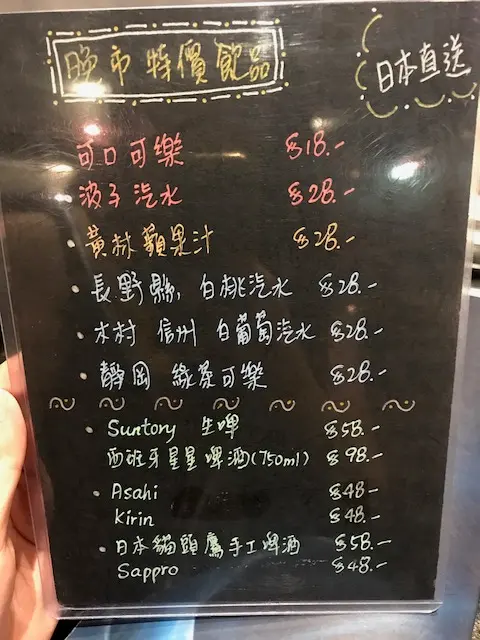 晚市特價飲品
日本直送
可口可樂 $18.-
波子汽水 $28.-
• 黃林蘋果汁 $28.-
• 長野縣 白桃汽水 $28.-
• 木村 信州 白葡萄汽水 $28.-
• 靜岡 綠茶可樂 $28.-
• Suntory 生啤 $58.-
西班牙星星啤酒(750ml) $98.-
• Asahi $48-
Kirin $48.-
• 日本貓頭鷹手工啤酒 $58.-
Sappro $48.-